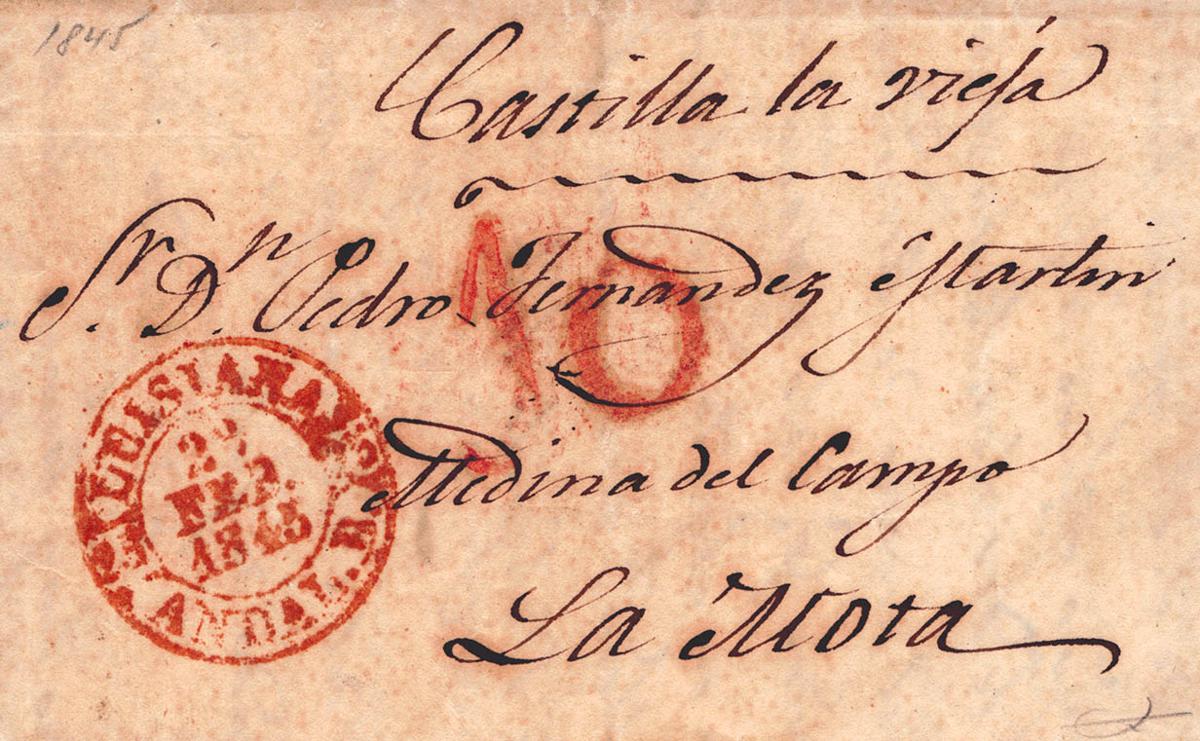 1845
Castilla la vieja
Sr. Dn. Pedro Fernandez Martin
10
Medina del Campo
La Mota
LUISIANA
22
FEB.
1845
ANDAL.